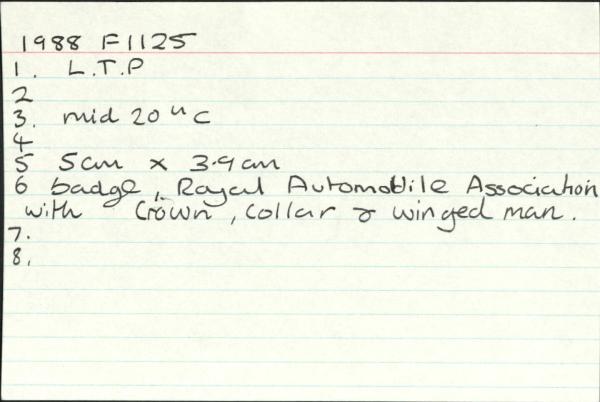 1988 F1125
1. L.T.P
2
3. mid 20 " C
4
5 5cm x 3.9cm
6 badge, Royal Automobile Association
with Crown, collar & winged man.
7.
8.